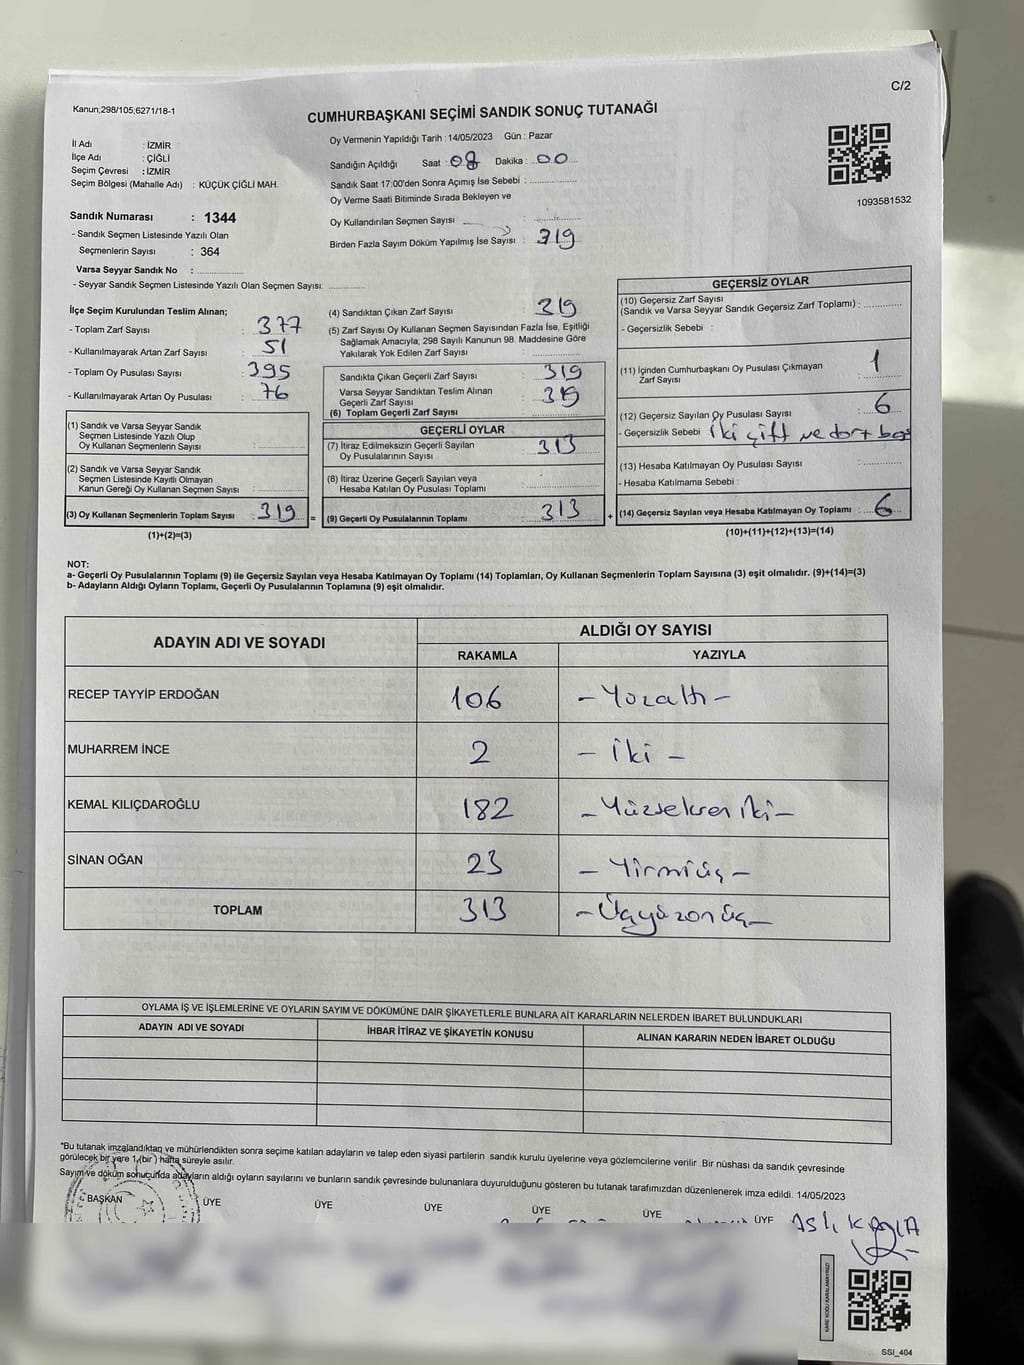 C/2
Kanun;298/105;6271/18-1
CUMHURBAŞKANI SEÇİMİ SANDIK SONUÇ TUTANAĞI
İl Adı : İZMİR
İlçe Adı : ÇİĞLİ
Seçim Çevresi : İZMİR
Seçim Bölgesi (Mahalle Adı) : KÜÇÜK ÇİĞLİ MAH.
Sandık Numarası : 1344
- Sandık Seçmen Listesinde Yazılı Olan
Seçmenlerin Sayısı : 364
Varsa Seyyar Sandık No :
- Seyyar Sandık Seçmen Listesinde Yazılı Olan Seçmen Sayısı:
Oy Vermenin Yapıldığı Tarih : 14/05/2023 Gün : Pazar
Sandığın Açıldığı Saat : 08 Dakika : 00
Sandık Saat 17:00'den Sonra Açımış İse Sebebi :
Oy Verme Saati Bitiminde Sırada Bekleyen ve
Oy Kullandırılan Seçmen Sayısı :
Birden Fazla Sayım Döküm Yapılmış İse Sayısı : 319
1093581532
İlçe Seçim Kurulundan Teslim Alınan;
- Toplam Zarf Sayısı : 377
- Kullanılmayarak Artan Zarf Sayısı : 51
- Toplam Oy Pusulası Sayısı : 395
- Kullanılmayarak Artan Oy Pusulası : 76
(1) Sandık ve Varsa Seyyar Sandık
Seçmen Listesinde Yazılı Olup
Oy Kullanan Seçmenlerin Sayısı :
(2) Sandık ve Varsa Seyyar Sandık
Seçmen Listesinde Kayıtlı Olmayan
Kanun Gereği Oy Kullanan Seçmen Sayısı :
(3) Oy Kullanan Seçmenlerin Toplam Sayısı : 319 =
(1)+(2)=(3)
(4) Sandıktan Çıkan Zarf Sayısı : 319
(5) Zarf Sayısı Oy Kullanan Seçmen Sayısından Fazla İse, Eşitliği
Sağlamak Amacıyla; 298 Sayılı Kanunun 98. Maddesine Göre
Yakılarak Yok Edilen Zarf Sayısı :
Sandıkta Çıkan Geçerli Zarf Sayısı : 319
Varsa Seyyar Sandıktan Teslim Alınan
Geçerli Zarf Sayısı : 319
(6) Toplam Geçerli Zarf Sayısı :
GEÇERLİ OYLAR
(7) İtiraz Edilmeksizin Geçerli Sayılan
Oy Pusulalarının Sayısı : 313
(8) İtiraz Üzerine Geçerli Sayılan veya
Hesaba Katılan Oy Pusulası Toplamı :
(9) Geçerli Oy Pusulalarının Toplamı : 313 +
GEÇERSİZ OYLAR
(10) Geçersiz Zarf Sayısı
(Sandık ve Varsa Seyyar Sandık Geçersiz Zarf Toplamı) :
- Geçersizlik Sebebi :
(11) İçinden Cumhurbaşkanı Oy Pusulası Çıkmayan
Zarf Sayısı : 1
(12) Geçersiz Sayılan Oy Pusulası Sayısı : 6
- Geçersizlik Sebebi : İki çift ve dört
(13) Hesaba Katılmayan Oy Pusulası Sayısı :
- Hesaba Katılmama Sebebi :
(14) Geçersiz Sayılan veya Hesaba Katılmayan Oy Toplamı : 6
(10)+(11)+(12)+(13)=(14)
NOT:
a- Geçerli Oy Pusulalarının Toplamı (9) ile Geçersiz Sayılan veya Hesaba Katılmayan Oy Toplamı (14) Toplamları, Oy Kullanan Seçmenlerin Toplam Sayısına (3) eşit olmalıdır. (9)+(14)=(3)
b- Adayların Aldığı Oyların Toplamı, Geçerli Oy Pusulalarının Toplamına (9) eşit olmalıdır.
ADAYIN ADI VE SOYADI
ALDIĞI OY SAYISI
RAKAMLA YAZIYLA
RECEP TAYYİP ERDOĞAN 106 - Yüzaltı -
MUHARREM İNCE 2 - İki -
KEMAL KILIÇDAROĞLU 182 - Yüzseksen iki -
SİNAN OĞAN 23 - Yirmiüç -
TOPLAM 313 - Üçyüzonüç -
OYLAMA İŞ VE İŞLEMLERİNE VE OYLARIN SAYIM VE DÖKÜMÜNE DAİR ŞİKAYETLERLE BUNLARA AİT KARARLARIN NELERDEN İBARET BULUNDUKLARI
ADAYIN ADI VE SOYADI İHBAR İTİRAZ VE ŞİKAYETİN KONUSU ALINAN KARARIN NEDEN İBARET OLDUĞU
*Bu tutanak imzalandıktan ve mühürlendikten sonra seçime katılan adayların ve talep eden siyasi partilerin sandık kurulu üyelerine veya gözlemcilerine verilir. Bir nüshası da sandık çevresinde
görülecek bir yere 1 (bir) hafta süreyle asılır.
Sayım ve döküm sonucunda adayların aldığı oyların sayılarını ve bunların sandık çevresinde bulunanlara duyurulduğunu gösteren bu tutanak tarafımızdan düzenlenerek imza edildi. 14/05/2023
BAŞKAN ÜYE ÜYE ÜYE ÜYE ÜYE ÜYE ASLI KAYA
SSI_404